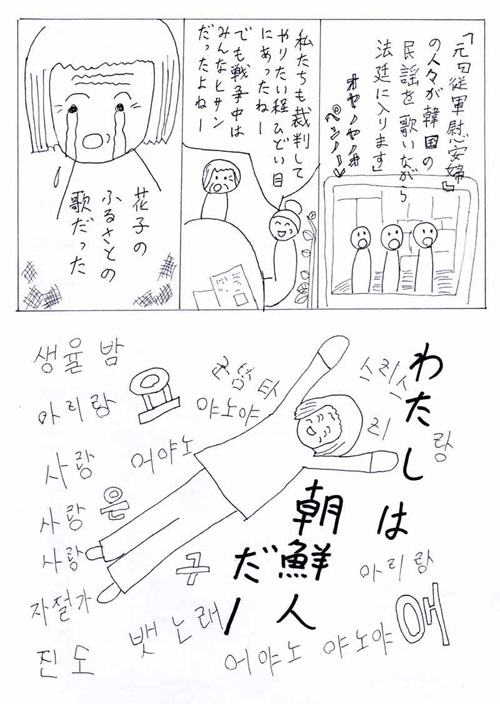 「元日従軍慰安婦」
の人々が韓国の
民謡を歌いながら
法廷に入ります」
オヤノヤノヤ
ペンノ〜
私たちも裁判して
やりたい程ひどい目
にあったねー
でも戦争中は
みんなヒサン
だったよねー
花子の
ふるさとの
歌だった
わたしは
朝鮮人
だー
생율 밤
아리랑
야노야
스리스
리
랑
사랑
어야노
사랑은
사랑
자절가
아리랑
진도
뱃노래
어야노 야노야
애